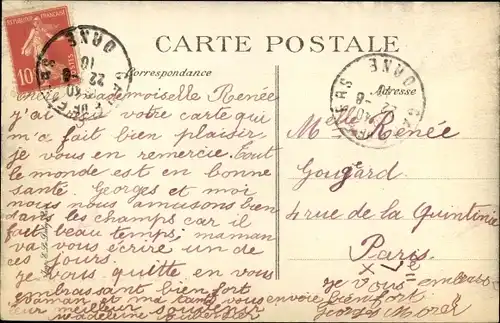 CARTE POSTALE
Correspondance
Adresse
10
Mademoiselle Renée
j'ai reçu votre carte qui
m'a fait bien plaisir
je vous en remercie. Tout
le monde est en bonne
santé. Georges et moi
nous nous amusons bien
dans les champs car il
fait beau temps; maman
va vous écrire un de
ces jours.
je vous quitte en vous
embrassant bien fort
Maman et ma tante vous envoie
leur meilleur souvenir
Madeleine
Melle Renée
Gougard
4 rue de la Quintinie
Paris
je vous embrasse
bien fort
Georges